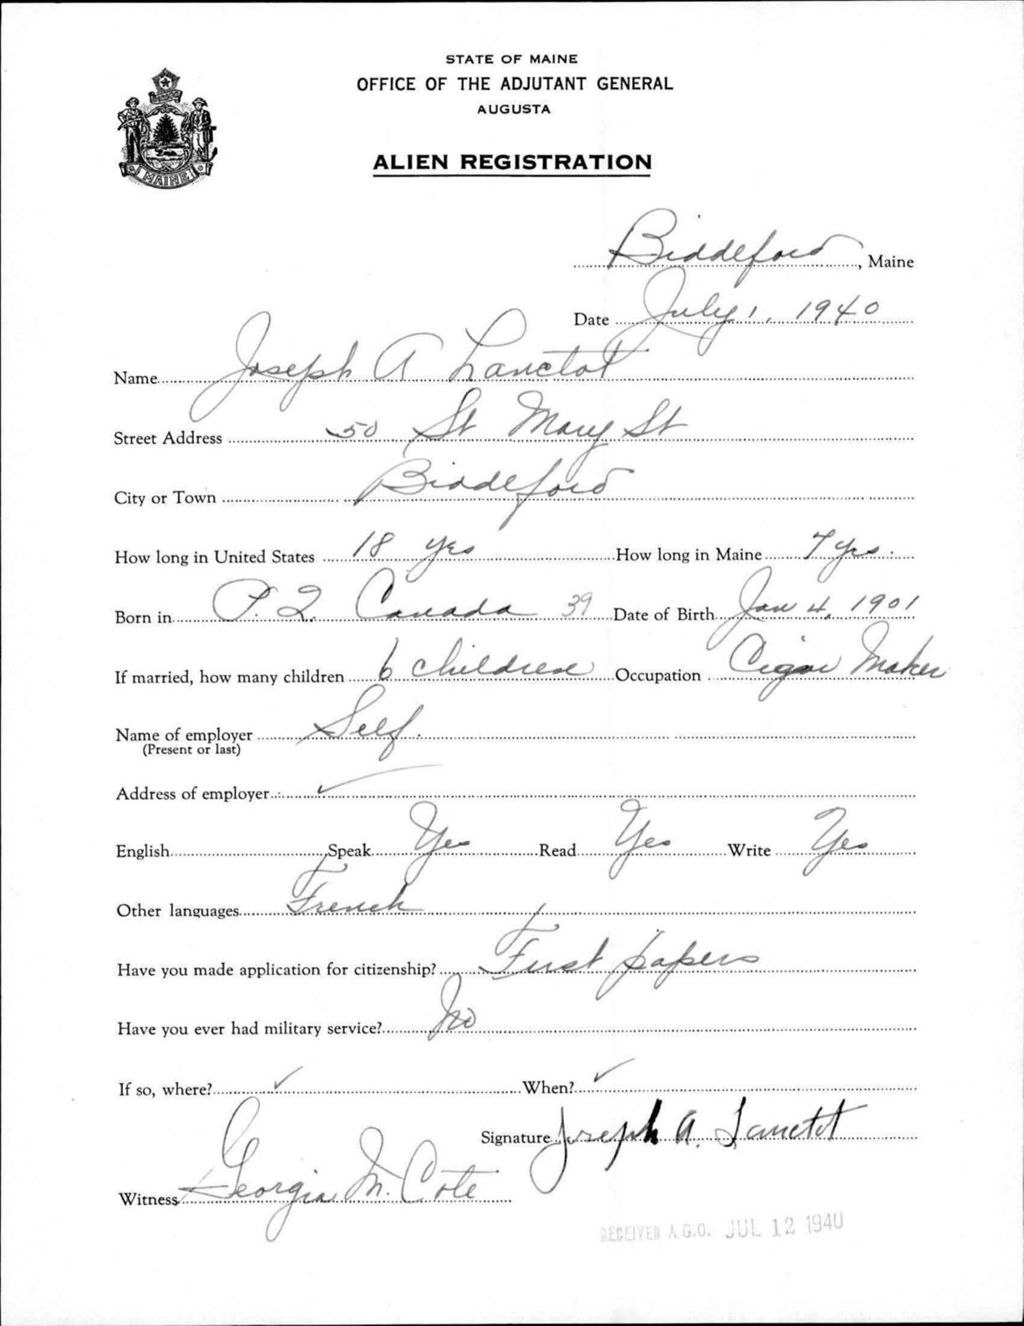 STATE OF MAINE
OFFICE OF THE ADJUTANT GENERAL
AUGUSTA
ALIEN REGISTRATION
MAINE
Biddeford, Maine
Date July 1, 1940
Name Joseph A Lanctot
Street Address 50 St Mary St
City or Town Biddeford
How long in United States 18 yrs How long in Maine 7 yrs.
Born in P.Q. Canada 39 Date of Birth Jan 4, 1901
If married, how many children 6 children Occupation Cigar Maker
Name of employer Self.
(Present or last)
Address of employer ✓
English Speak Yes Read Yes Write Yes
Other languages French
Have you made application for citizenship? First papers
Have you ever had military service? No
If so, where? ✓ When? ✓
Signature Joseph A. Lanctot
Witness Georgia M. Cote
RECEIVED A.G.O. JUL 12 1940